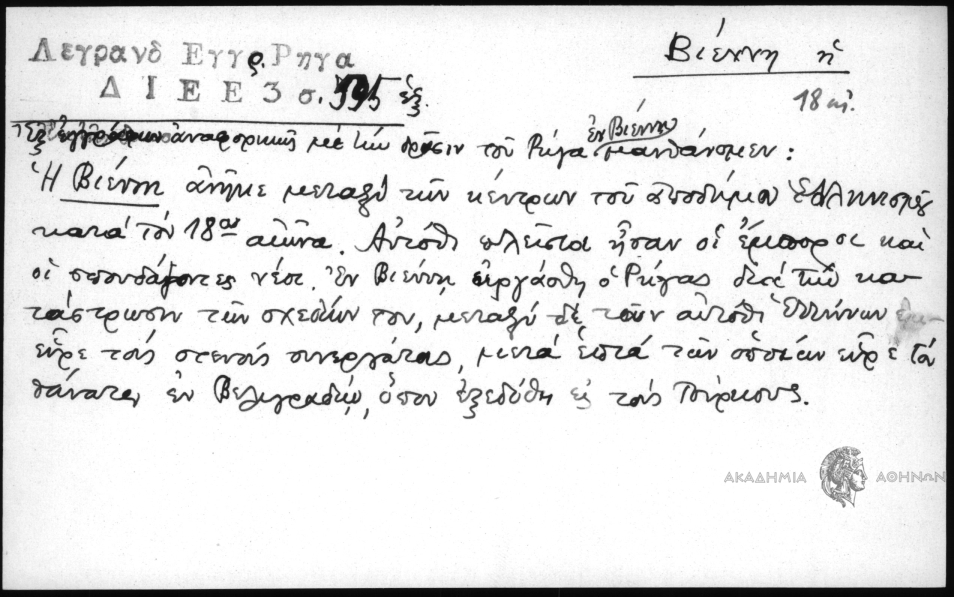 Λεγρανδ Εγγρ. Ρηγα
ΔΙΕΕ 3 σ. 595 ἑξ.
Βιέννη ἡ
18 αἰ.
Ἐξ ἐγγράφων ἀναφορικῶς μὲ τὴν δρᾶσιν τοῦ Ρήγα ἐν Βιέννῃ μανθάνομεν:
Ἡ Βιέννη ἀνῆκε μεταξὺ τῶν κέντρων τοῦ ἀποδήμου Ἑλληνισμοῦ
κατὰ τὸν 18ον αἰῶνα. Αὐτόθι πλεῖστοι ἦσαν οἱ ἔμποροι καὶ
οἱ σπουδάζοντες νέοι. Ἐν Βιέννῃ εἰργάσθη ὁ Ρήγας διὰ τὴν κα-
τάστρωσιν τῶν σχεδίων του, μεταξὺ δὲ τῶν αὐτόθι Ἑλλήνων
εὗρε τοὺς στενοὺς συνεργάτας, μετὰ ἑπτὰ τῶν ὁποίων εὗρε τὸν
θάνατον ἐν Βελιγραδίῳ, ὅπου ἐξεδόθη εἰς τοὺς Τούρκους.
ΑΚΑΔΗΜΙΑ ΑΘΗΝΩΝ